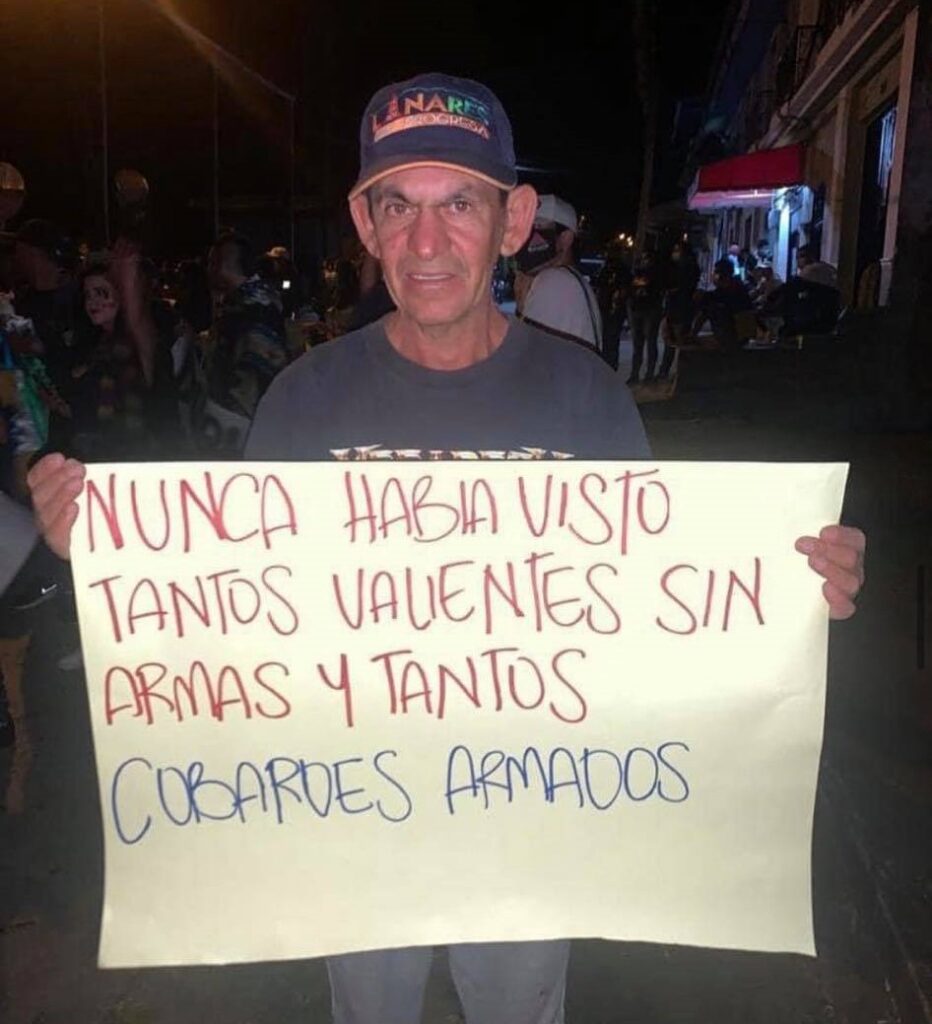 LINARES
PROGRESA
NUNCA HABIA VISTO
TANTOS VALIENTES SIN
ARMAS Y TANTOS
COBARDES ARMADOS